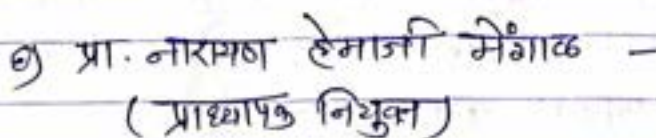 ७) प्रा. नारायण हेमाजी मेंगाळ -
( प्राध्यापक नियुक्त )